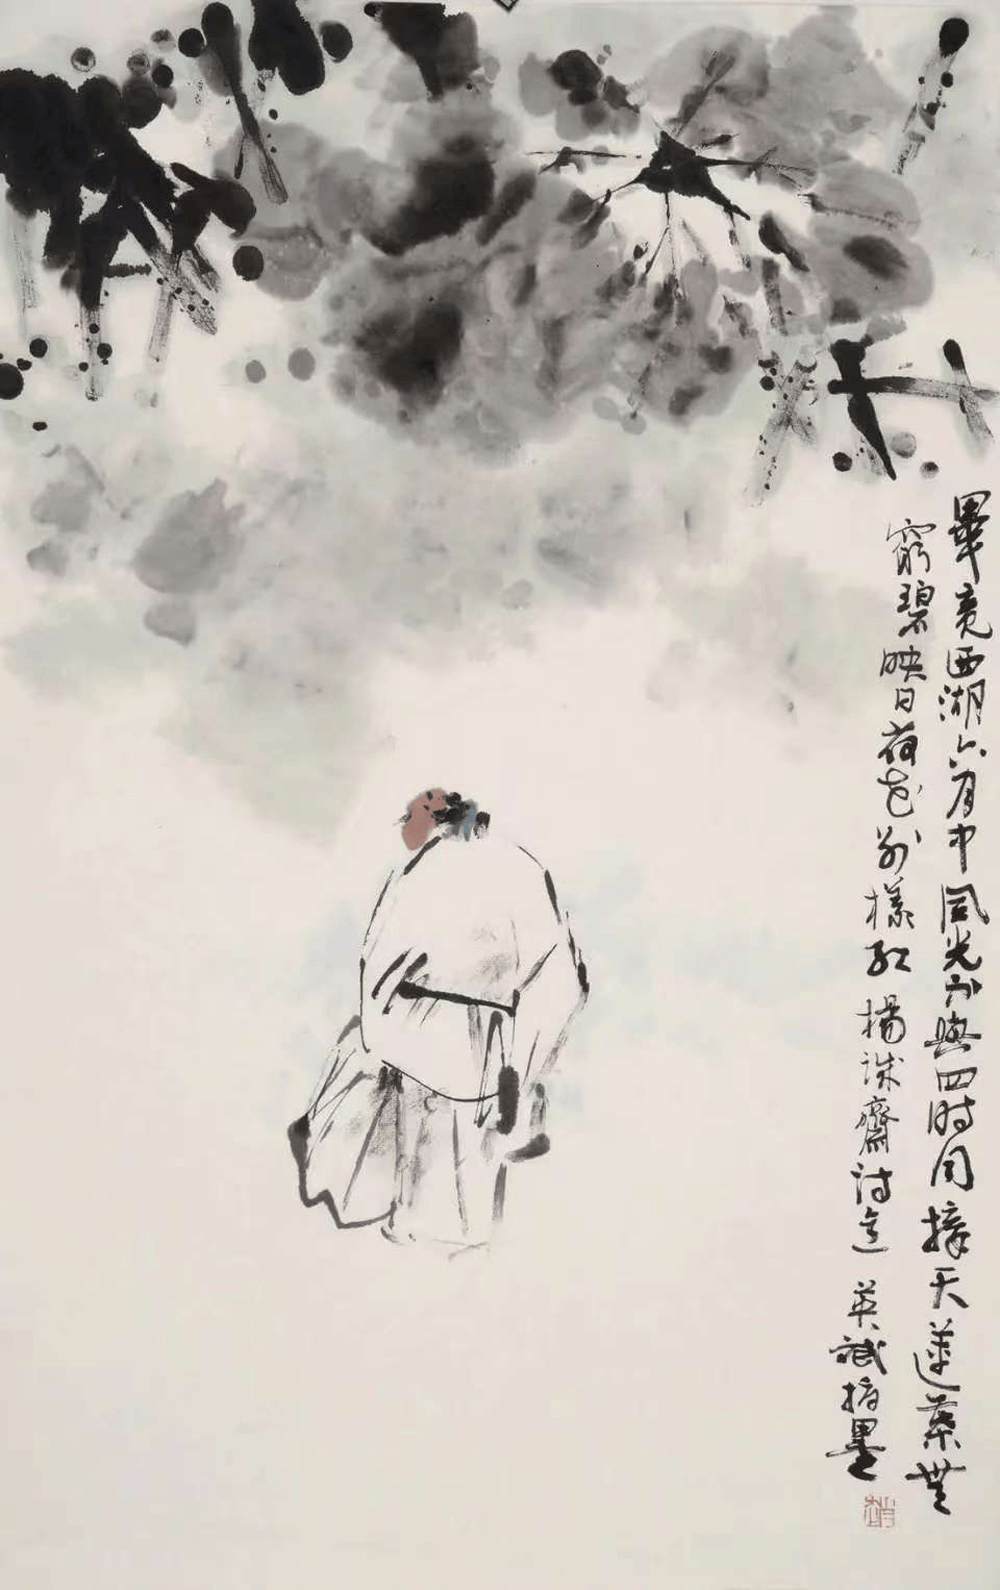 畢竟西湖六月中風光不與四時同接天蓮葉無
窮碧映日荷花別樣紅 楊誠齋詩意 英誠指墨